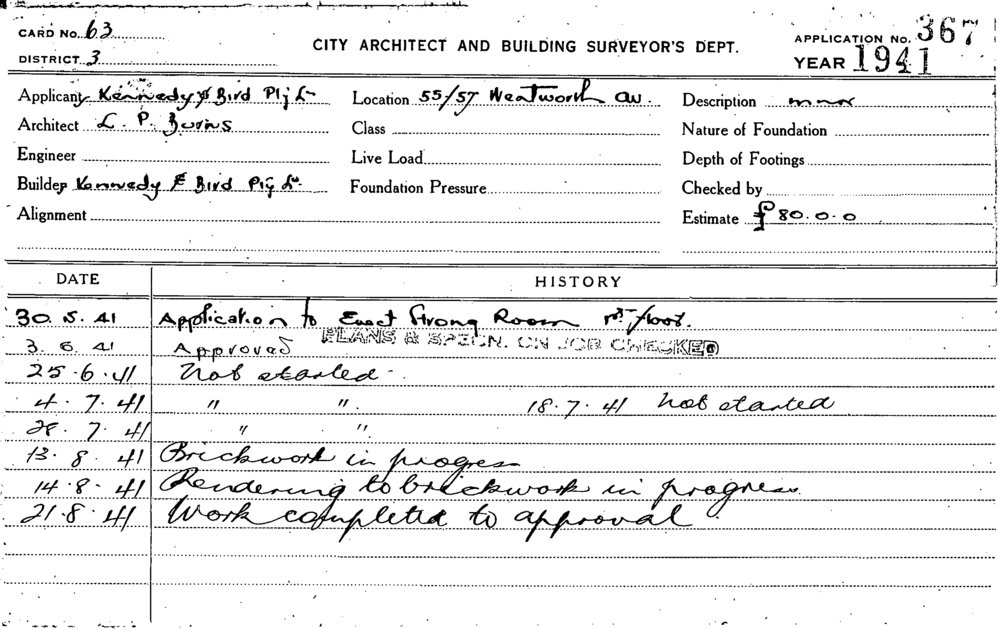 CARD No. 63
CITY ARCHITECT AND BUILDING SURVEYOR'S DEPT.
APPLICATION No. 367
DISTRICT 3
YEAR 1941
Applicant Kennedy & Bird Pty Ld
Location 55/57 Wentworth Av.
Description minor
Architect L. P. Burns
Class
Nature of Foundation
Engineer
Live Load
Depth of Footings
Builder Kennedy & Bird Pty Ld.
Foundation Pressure
Checked by
Alignment
Estimate £80.0.0
DATE HISTORY
30.5.41 Application to Erect Strong Room 1st floor.
3.6.41 Approved PLANS & SPECN. ON JOB CHECKED
25.6.41 Not started
4.7.41 " " 18.7.41 Not started
28.7.41 " "
13.8.41 Brickwork in progress
14.8.41 Rendering to brickwork in progress
21.8.41 Work completed to approval.